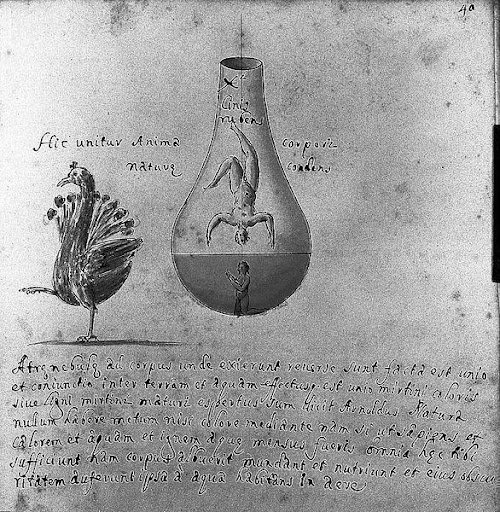 40
Xe
Cinis
rubens
Hic unitur Anima corpori
naturę condens
Atq nebulę ad corpus unde exierunt reverse sunt facta est unio
et coniunctio inter terram et aquam effectusq est unio mirtini coloris
siue ligni mirtini maturi expertus sum Dicit Arnuldus Natura
nullum habere motum nisi calore mediante nam si ut sapiens et
calorem et aquam et ignem aquę mensus fueris omnia hęc tibi
sufficiunt nam corpus dealbant mundant et nutriunt et eius obscu
ritatem auferunt ipsa à aqua habitans in aere